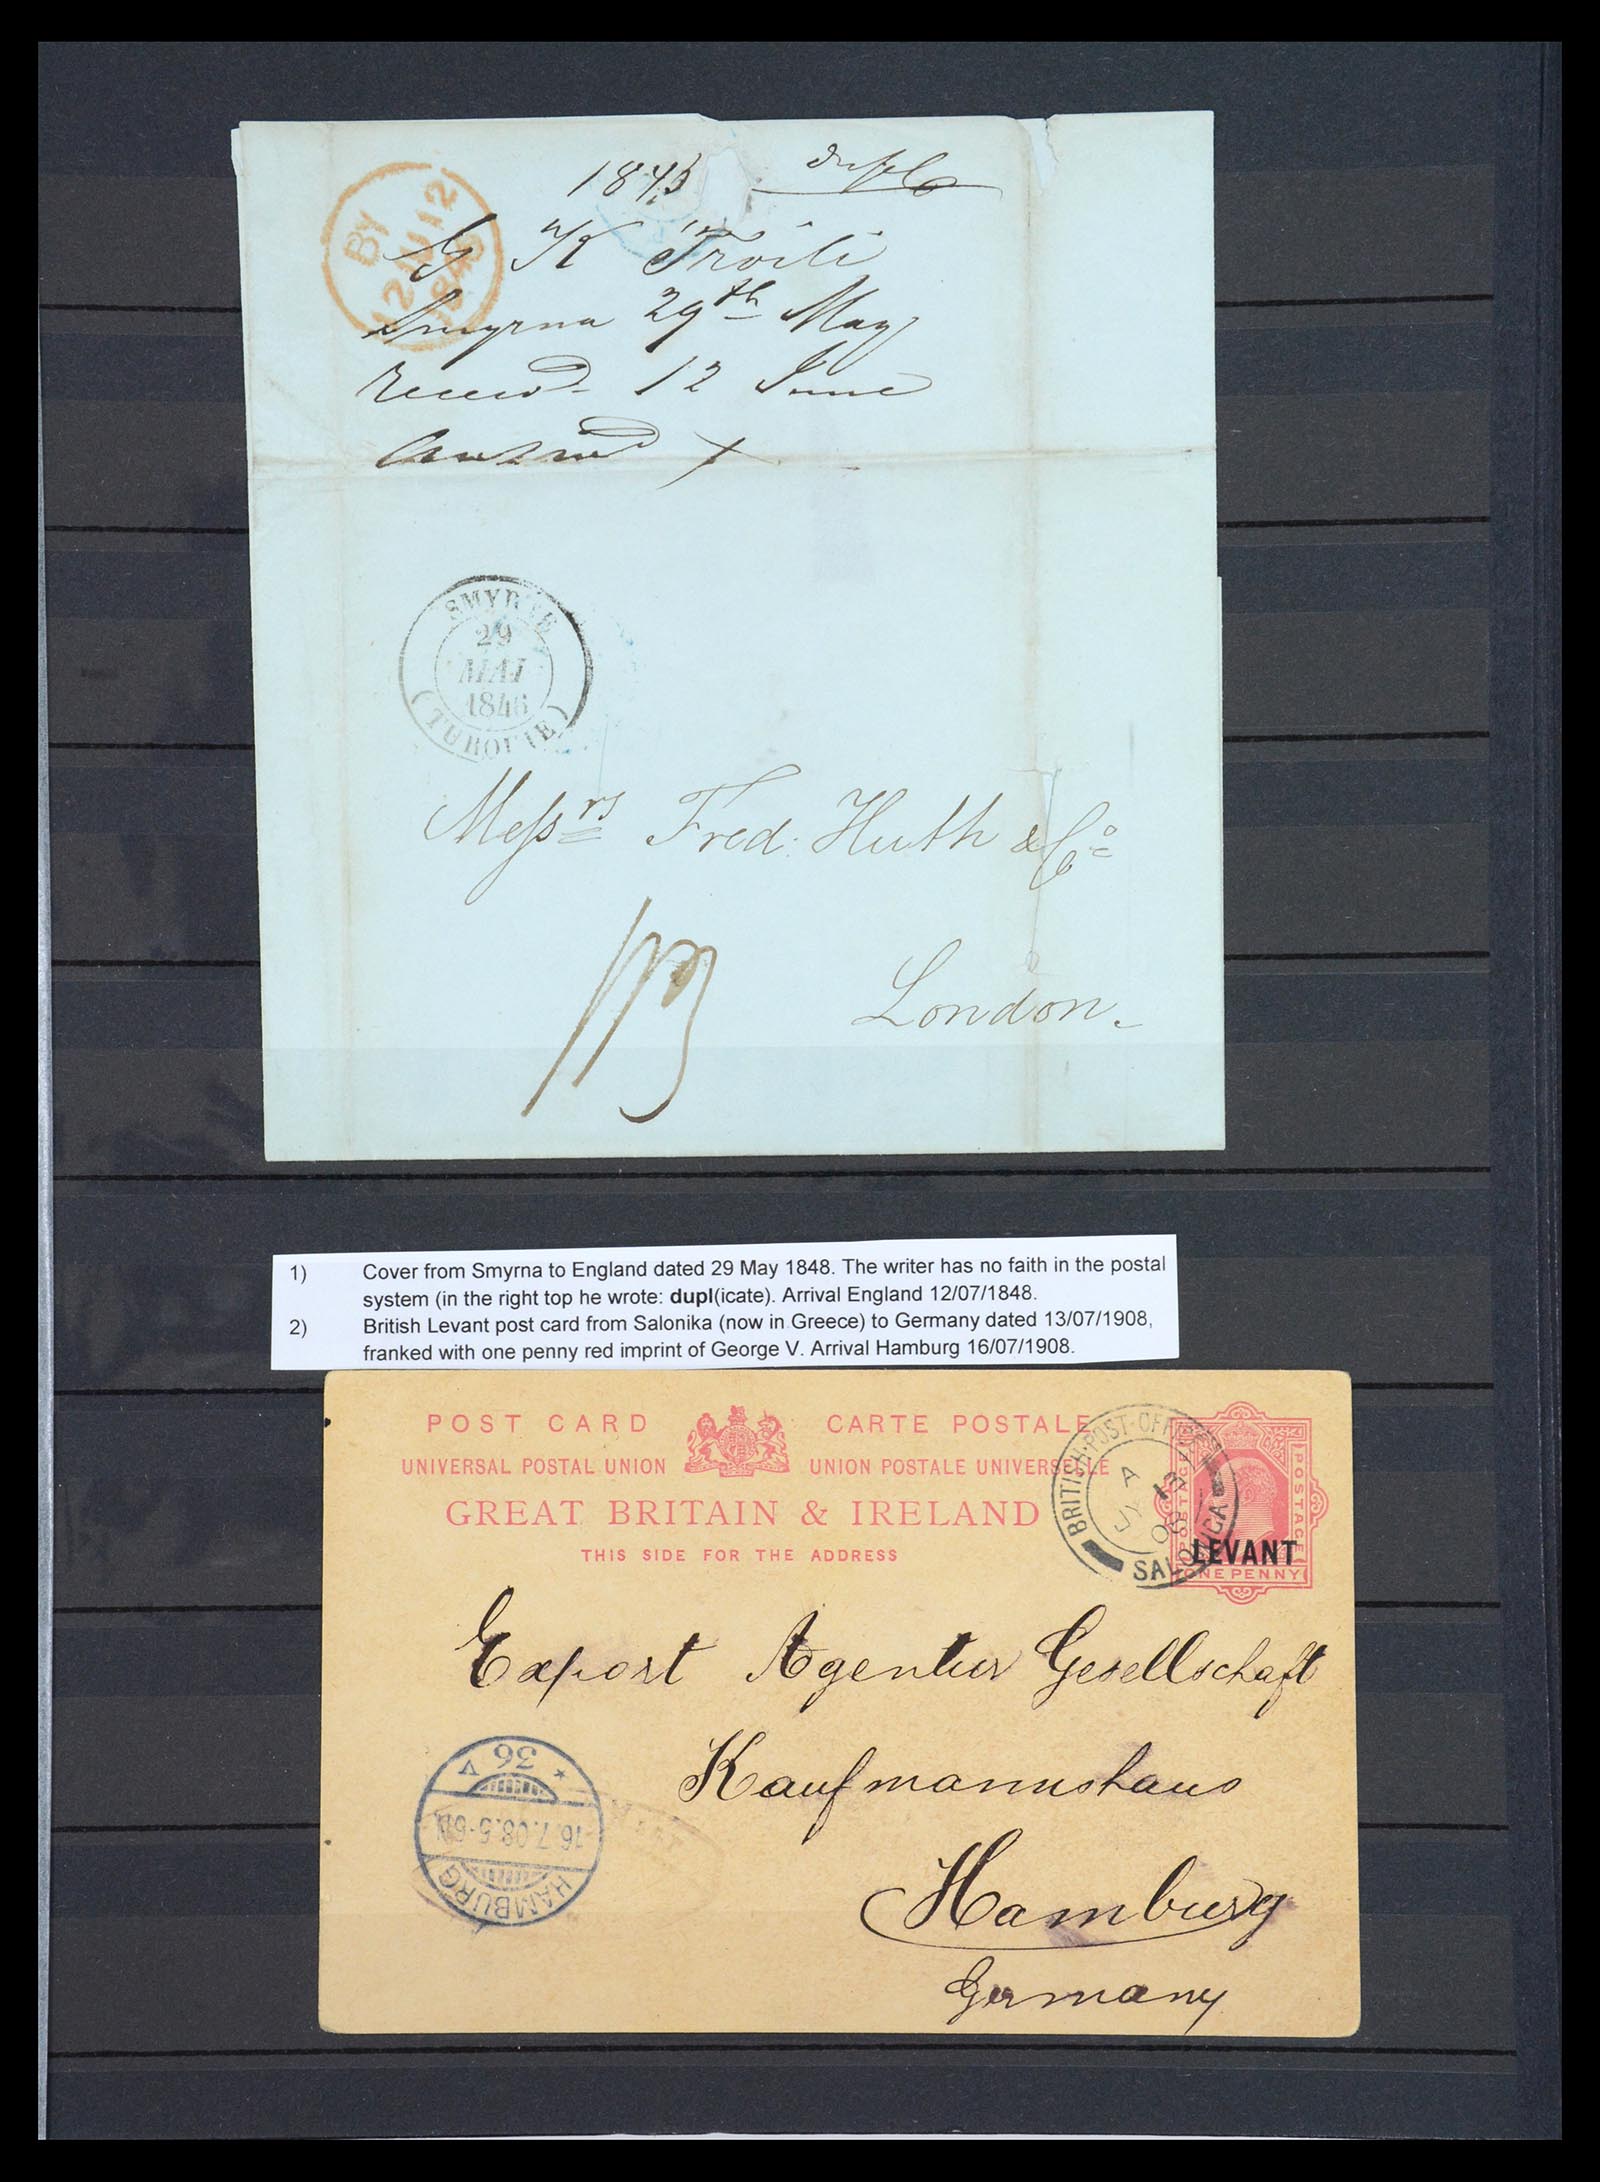 1843 dupl
BY
12 JU 12
184
G K Troili
Smyrna 29th May
Receivd. 12 June
Answd X
SMYRNE
29
MAI
1846
(TURQUIE)
Messrs Fred. Huth & Co
London.
1) Cover from Smyrna to England dated 29 May 1848. The writer has no faith in the postal
system (in the right top he wrote: dupl(icate). Arrival England 12/07/1848.
2) British Levant post card from Salonika (now in Greece) to Germany dated 13/07/1908,
franked with one penny red imprint of George V. Arrival Hamburg 16/07/1908.
POST CARD CARTE POSTALE
UNIVERSAL POSTAL UNION UNION POSTALE UNIVERSELLE
GREAT BRITAIN & IRELAND
THIS SIDE FOR THE ADDRESS
BRITISH·POST·OFFICE
A
JY 13
08
SALONICA
POSTAGE POSTAGE
LEVANT
ONE PENNY
Export Agentur Gesellschaft
Kaufmannshaus
Hamburg
Germany
HAMBURG
16.7.08.5-6N
* 36 V